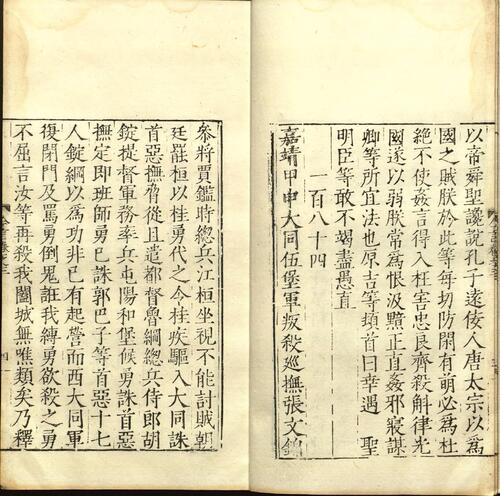 以帝舜聖讒說孔子遠佞人唐太宗以爲
國之賊朕於此等每切防閑有萌必爲杜
絶不使姦言得入枉害忠良齊殺斛律光
國遂以弱朕常爲恨汲黯正直姦邪寢謀
卿等所宜法也原吉等頓首曰幸遇　聖
明臣等敢不竭盡愚直
一百八十四
嘉靖甲申大同伍堡軍叛殺巡撫張文錦
叅將賈鑑時總兵江桓坐視不能討賊朝
廷罷桓以桂勇代之令桂疾驅入大同誅
首惡撫脅從且遣都督魯綱總兵侍郎胡
錠提督軍務率兵屯陽和堡候勇誅首惡
撫定即班師勇已誅郭巴子等首惡十七
人錠綱以爲功非已有起營而西大同軍
復閉門及罵勇倒鬼誑我縛勇欲殺之勇
不屈言汝等再殺我闔城無噍類矣乃釋